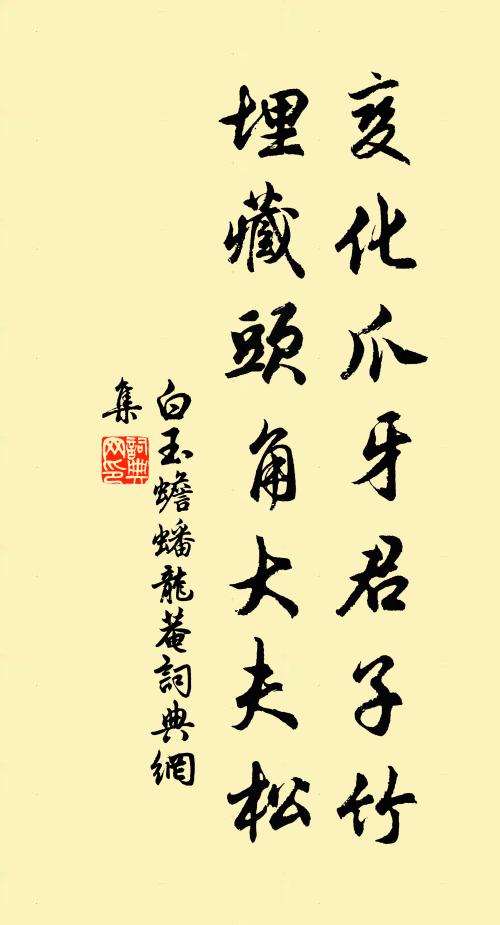 変化爪牙君子竹
埋藏頭角大夫松
白玉蟾蟠龍菴詞典網
集
詞典
网印